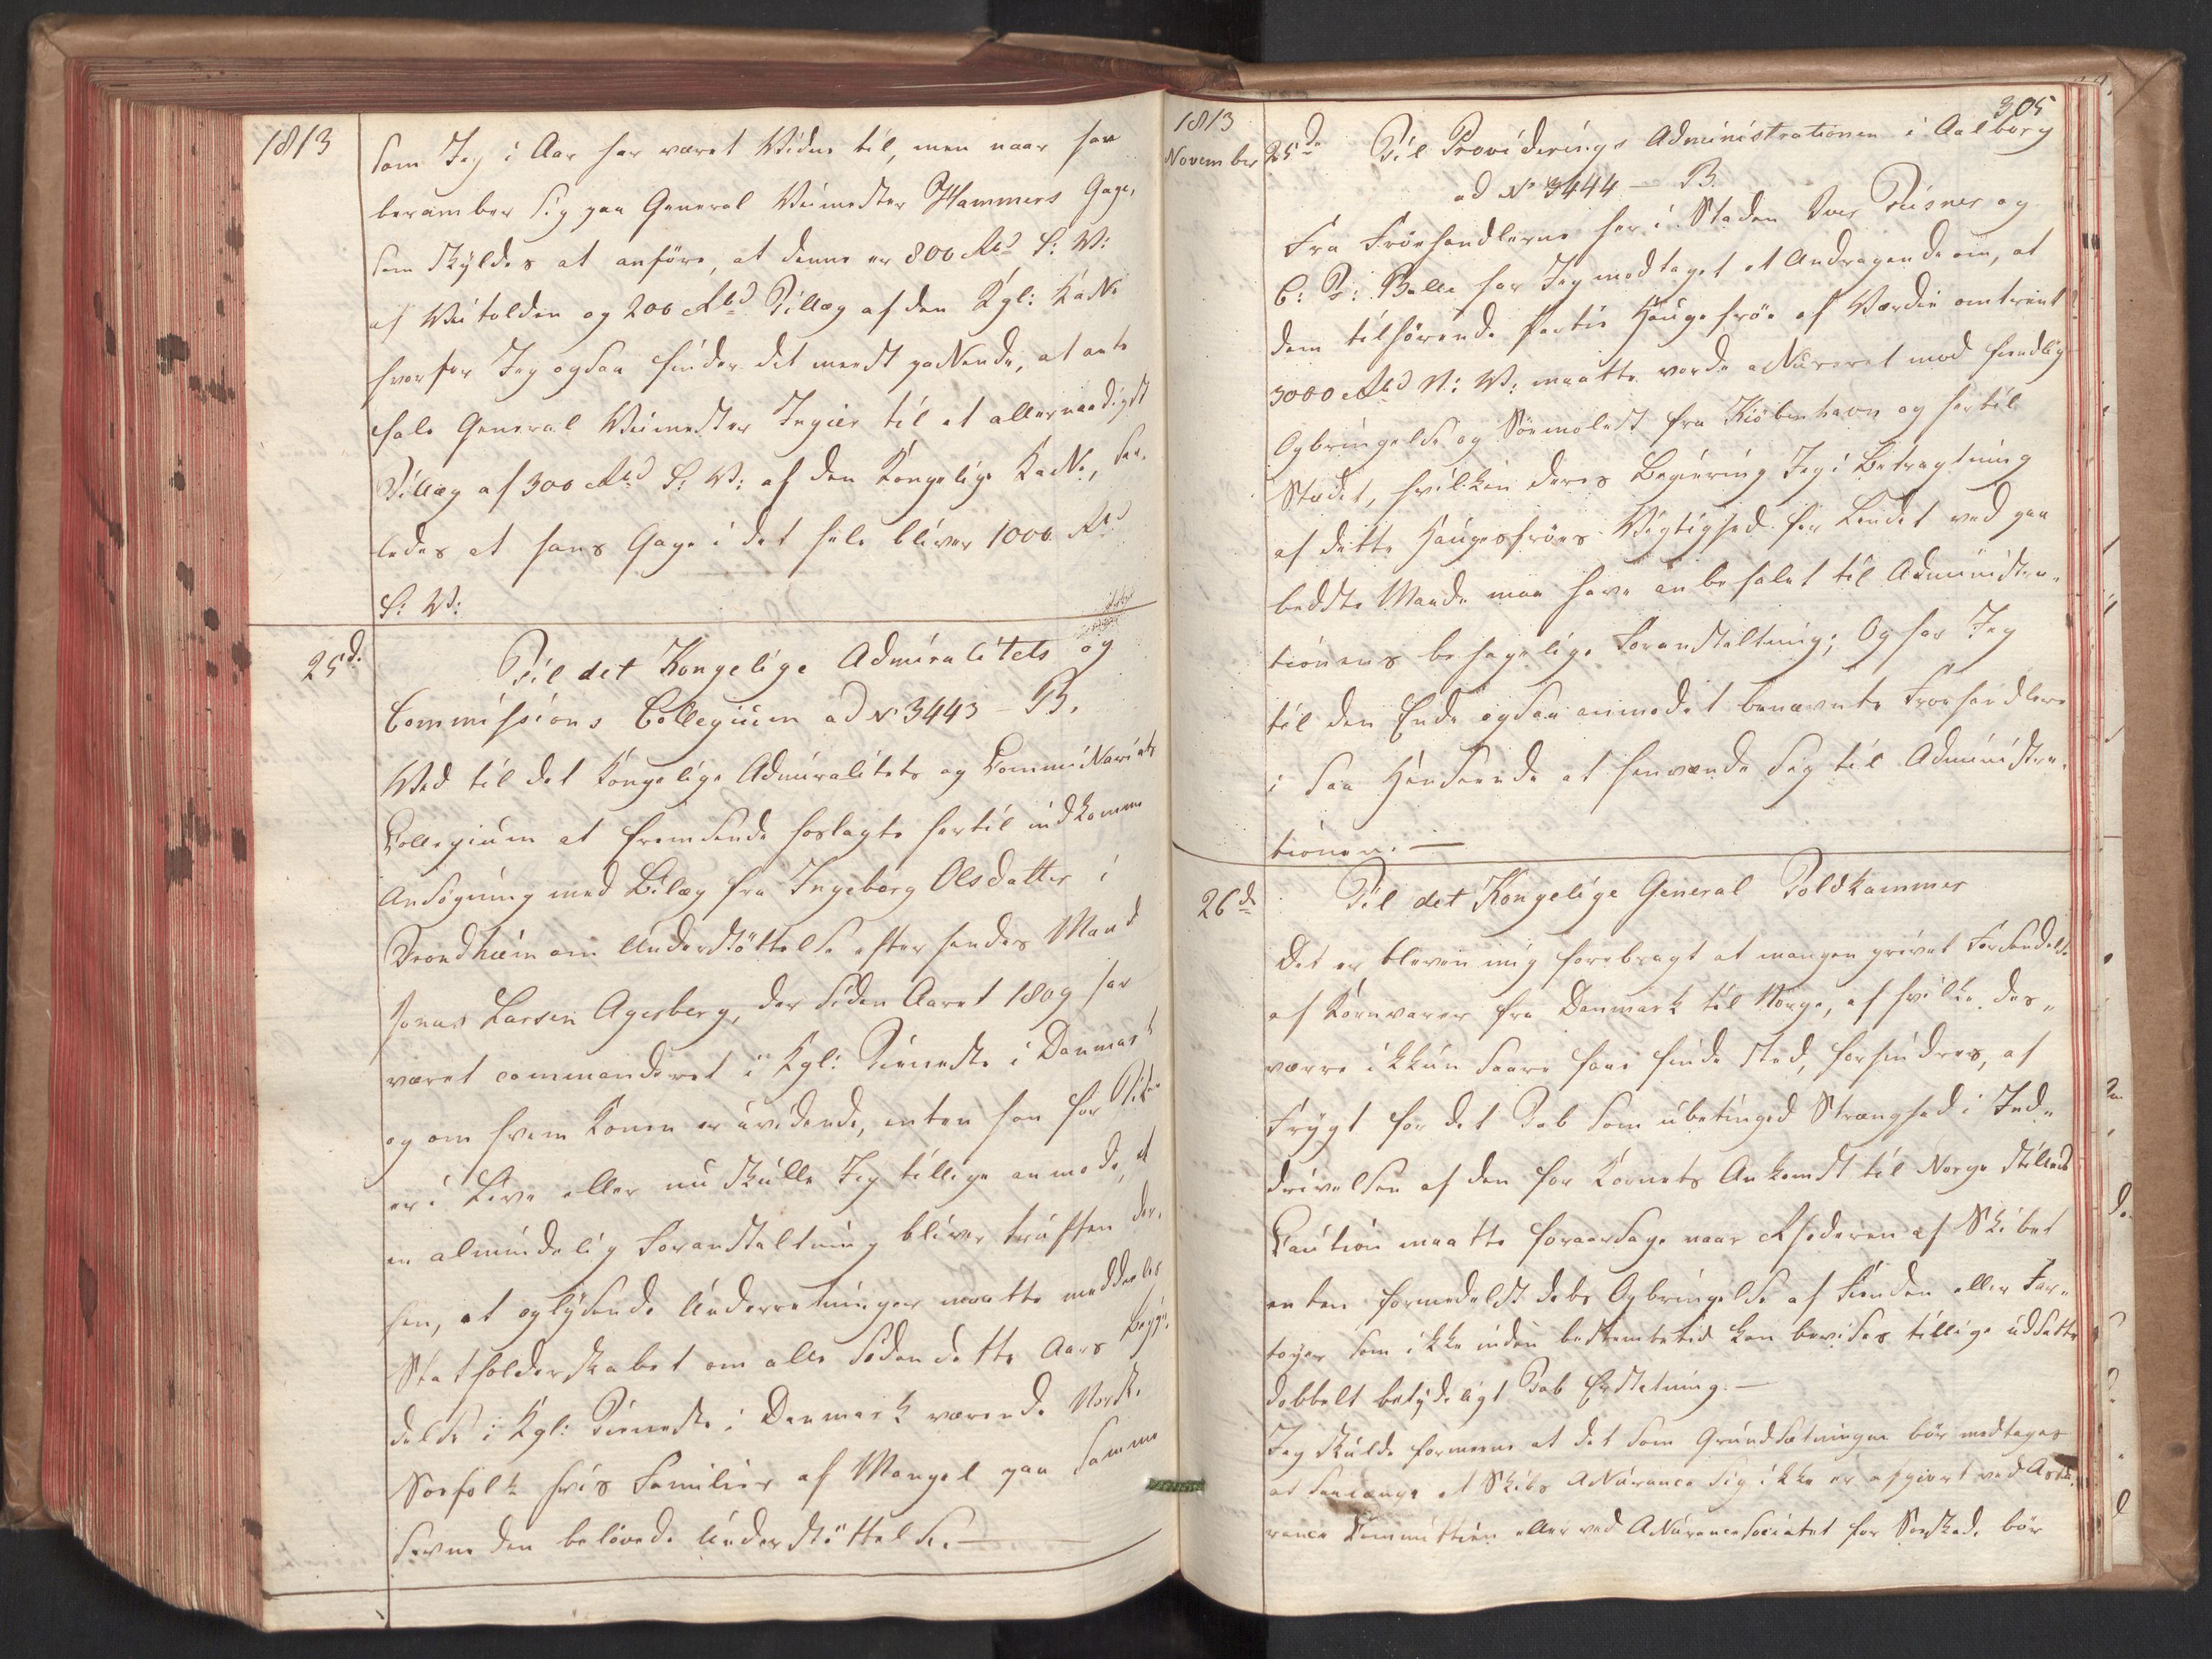 1813
som Jeg i Aar har været Vidne til, men naar han
beraaber sig paa General Veimester Hammers Gage,
som skyldes at anføre, at denne er 800 Rbd S: V:
af Veitolden og 200 Rbd Tillæg af den Kgl: Kasse
hvorfor Jeg ogsaa finder det meest passende, at anbe
fale General Veimester Ingier til et allernaadigst
Tillæg af 300 Rbd S: V: af den Kongelige Kasse, saa-
ledes at hans Gage i det hele bliver 1000 Rbd
S: V:
25d.
Til det Kongelige Admiralitets og
Commissions Collegium ad No 3443 - B.
Ved til det Kongelige Admiralitets og Commissariats
Collegium at fremsende hoslagte hertil indkomne
Ansøgning med Bilag fra Ingeborg Olsdatter i
Trondhiem om Understøttelse efter hendes Mand
Jonas Larsen Agerberg, der siden Aaret 1809 har
været commanderet i Kgl: Tieneste i Danmark
og om hvem Konen er uvidende, enten han for Tiden
er i Live eller nu skulle Jeg tillige anmode, at
en almindelig Foranstaltning bliver truffen der-
hen, at oplysende Underretninger maatte meddeles
Statholderskabet om alle siden dette Aars Begyn-
delse i Kgl: Tieneste i Danmark værende Norske
Søefolk hvis Familier af Mangel paa samme
savne den belovede Understøttelse. —
305
1813
November
25de
Til Providerings Administrationen i Aalborg
ad No 3444 — B.
Fra Frøehandlerne her i Staden Iver Prisner og
C: P: Balle har Jeg modtaget et Andragende om, at
dem tilhørende Partie Haugefrøe af Værdie omtrent
3000 Rbd N: V: maatte vorde assureret mod fiendlig
Opbringelse og Søemolest fra Kiöbenhavn og hertil
Stædet, hvilken deres Begiering Jeg i Betragtning
af dette Haugefrøes Vigtighed for Landet ved paa
bedste Maade maa have anbefalet til Administra-
tionens behagelige Foranstaltning; Og har Jeg
til den Ende ogsaa anmodet benævnte Frøehandlere
i saa Henseende at henvende sig til Administra-
tionen. —
26de
Til det Kongelige General Toldkammer
Det er bleven mig forebragt at mangen privat Forsendelse
af Kornvarer fra Danmark til Norge, af hvilke des-
værre ikkun saare faae finde Sted, forhindres, af
Frygt for det Tab som ubetinged Strænghed i Ind-
drivelsen af den for Kornets Ankomst til Norge stillede
Caution maatte foraarsage naar Rhederen af Skibet
enten formedelst dets Opbringelse af Fienden eller Far-
tøyer som ikke inden bestemte tid kan bevises tillige udsatte
dobbelt betydeligt Tab Erstatning. —
Jeg skulde formene at det som Grundsætninger bør modtages
at saalænge et Skibs Assurance sig ikke er afgiort ved Assu-
rance Committeen eller ved Assurancesocietet for Søeskade bør